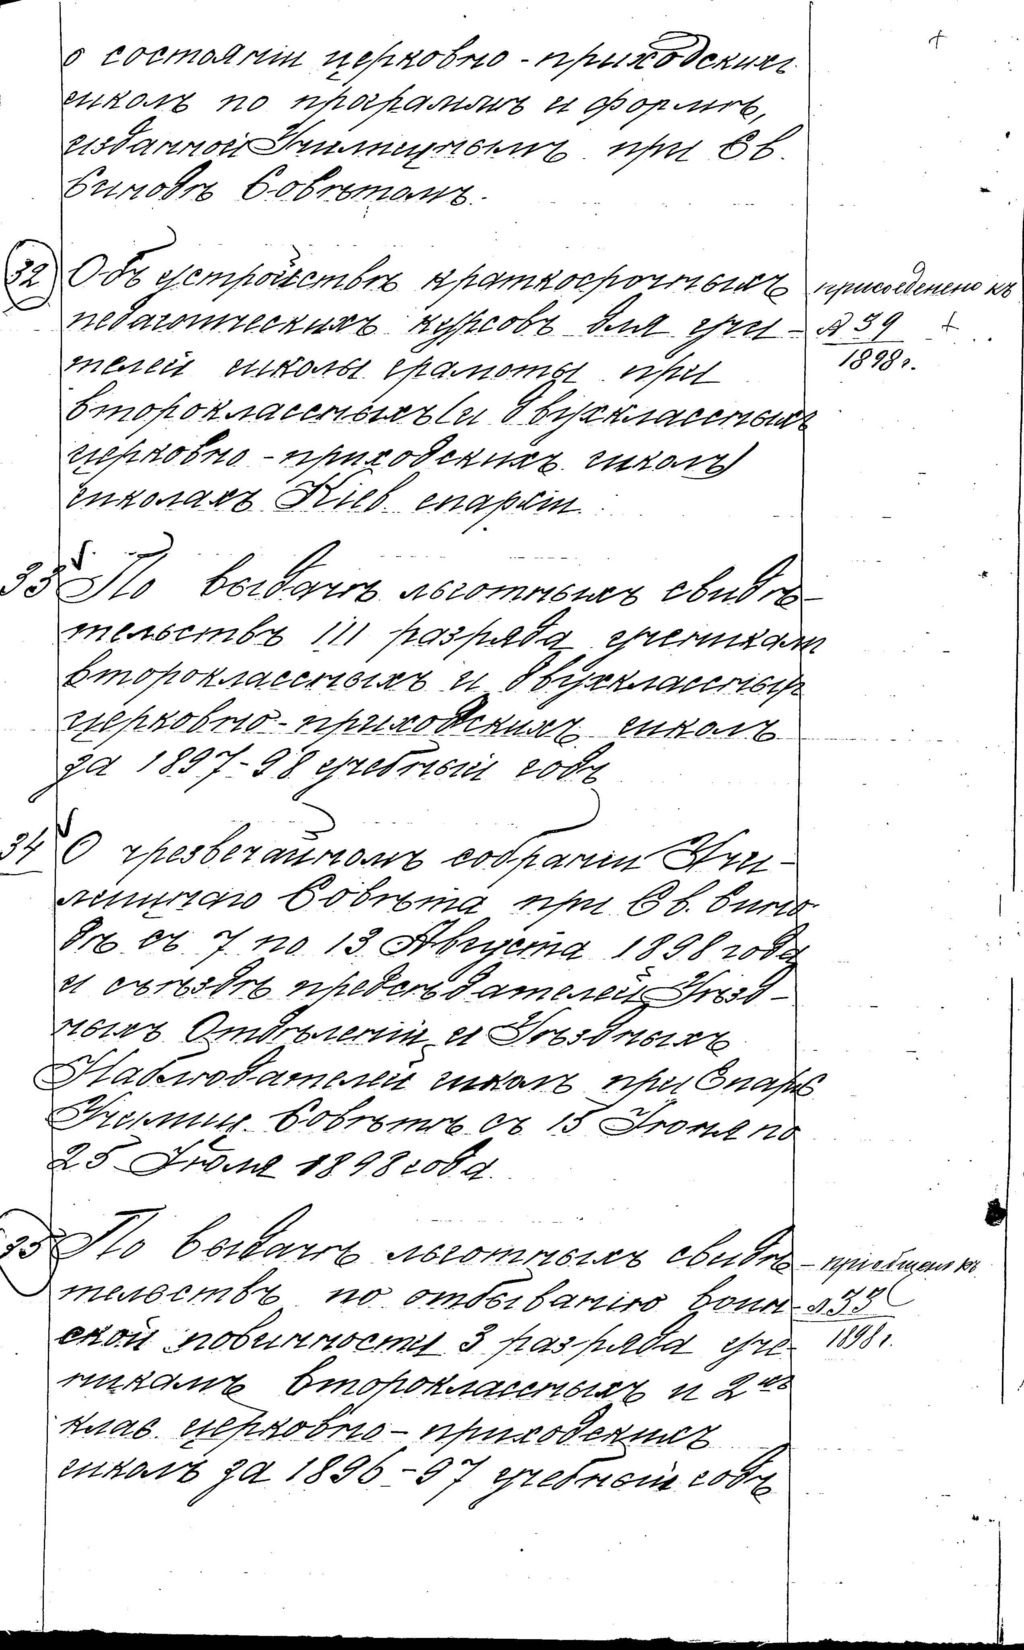 о состояніи церковно-приходскихъ
школъ по программѣ и формѣ,
изданной Училищнымъ при Св.
Синодѣ Совѣтомъ.
32 Объ устройствѣ краткосрочныхъ
присоеденено къ
педагогическихъ курсовъ для учи-
№ 39
телей школы грамоты при
1898 г.
второклассныхъ (и двухклассныхъ
церковно-приходскихъ школъ)
школахъ Кіев. епархіи.
33 По выдачѣ льготныхъ свидѣ-
тельствъ III разряда ученикам
второклассныхъ и двухклассныхъ
церковно-приходскихъ школъ
за 1897-98 учебный годъ
34 О чрезвечайномъ собраніи Учи-
лищнаго Совѣта при Св. Сино
дѣ съ 7 по 13 Августа 1898 года
и съѣздѣ предсѣдателей Уѣзд-
ныхъ Отдѣленій и Уѣздныхъ
Наблюдателей школъ при Епарх
Училищ. Совѣтѣ съ 15 Іюня по
25 Іюля 1898 года.
35 По выдачѣ льготныхъ свидѣ-
пріобщено къ
тельствъ по отбыванію воин-
№ 33
ской повинности 3 разряда уче-
1898 г.
никамъ второклассныхъ и 2хъ
клас. церковно-приходскихъ
школъ за 1896-97 учебный годъ